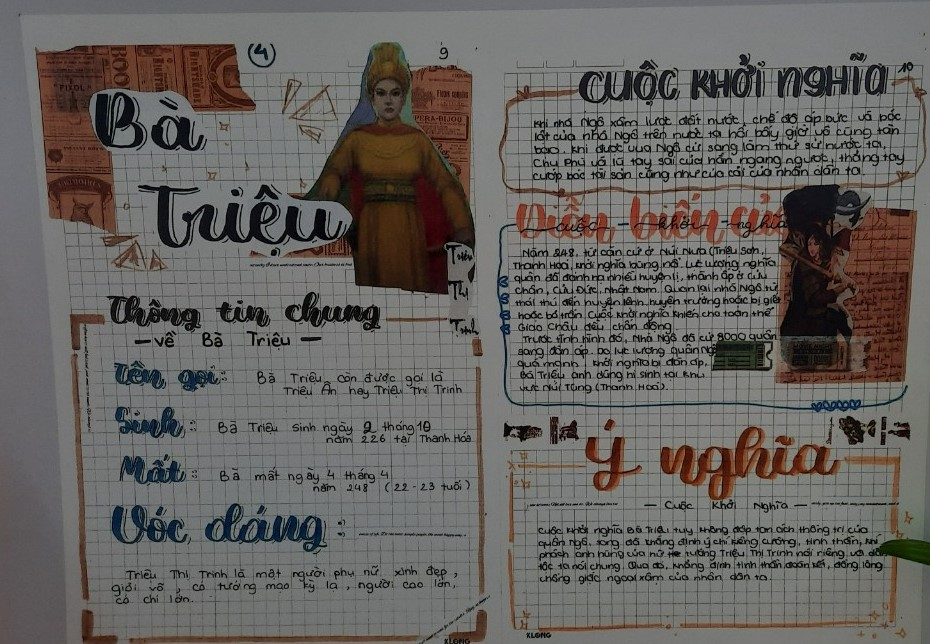 4
9
Bà
Triệu
Triệu
Thị
Trinh
Thông tin chung
— về Bà Triệu —
Tên gọi: Bà Triệu còn được gọi là
Triệu Ẩu hay Triệu Thị Trinh
Sinh: Bà Triệu sinh ngày 2 tháng 10
năm 226 tại Thanh Hóa
Mất: Bà mất ngày 4 tháng 4
năm 248 (22-23 tuổi)
Vóc dáng:
Triệu Thị Trinh là một người phụ nữ xinh đẹp,
giỏi võ, có tướng mạo kỳ lạ, người cao lớn,
có chí lớn.
KLONG
10
Cuộc khởi nghĩa
Khi nhà Ngô xâm lược đất nước, chế độ áp bức và bóc
lột của nhà Ngô trên nước ta hồi bấy giờ vô cùng tàn
bạo. Khi được vua Ngô cử sang làm thứ sử nước ta,
Chu Phù và lũ tay sai của hắn ngang ngược, thẳng tay
cướp bóc tài sản cũng như của cải của nhân dân ta.
Diễn biến của
— cuộc — khởi — nghĩa
Năm 248, từ căn cứ ở Núi Nưa (Triệu Sơn,
Thanh Hóa), khởi nghĩa bùng nổ. Lực lượng nghĩa
quân đã đánh hạ nhiều huyện lị, thành ấp ở Cửu
Chân, Cửu Đức, Nhật Nam. Quan lại nhà Ngô từ
thái thú đến huyện lệnh, huyện trưởng hoặc bị giết
hoặc bỏ trốn. Cuộc khởi nghĩa khiến cho toàn thể
Giao Châu đều chấn động
Trước tình hình đó, Nhà Ngô đã cử 8000 quân
sang đàn áp. Do lực lượng quân Ngô
quá mạnh, khởi nghĩa bị đàn áp.
Bà Triệu anh dũng hi sinh tại khu
vực Núi Tùng (Thanh Hóa).
Ý nghĩa
— Cuộc Khởi Nghĩa —
Cuộc khởi nghĩa Bà Triệu tuy không đập tan ách thống trị của
quân Ngô, song đã khẳng định ý chí kiên cường, tinh thần, khí
phách anh hùng của nữ tướng Triệu Thị Trinh nói riêng và dân
tộc ta nói chung. Qua đó, khẳng định tinh thần đoàn kết, đồng lòng
chống giặc ngoại xâm của nhân dân ta.
KLONG